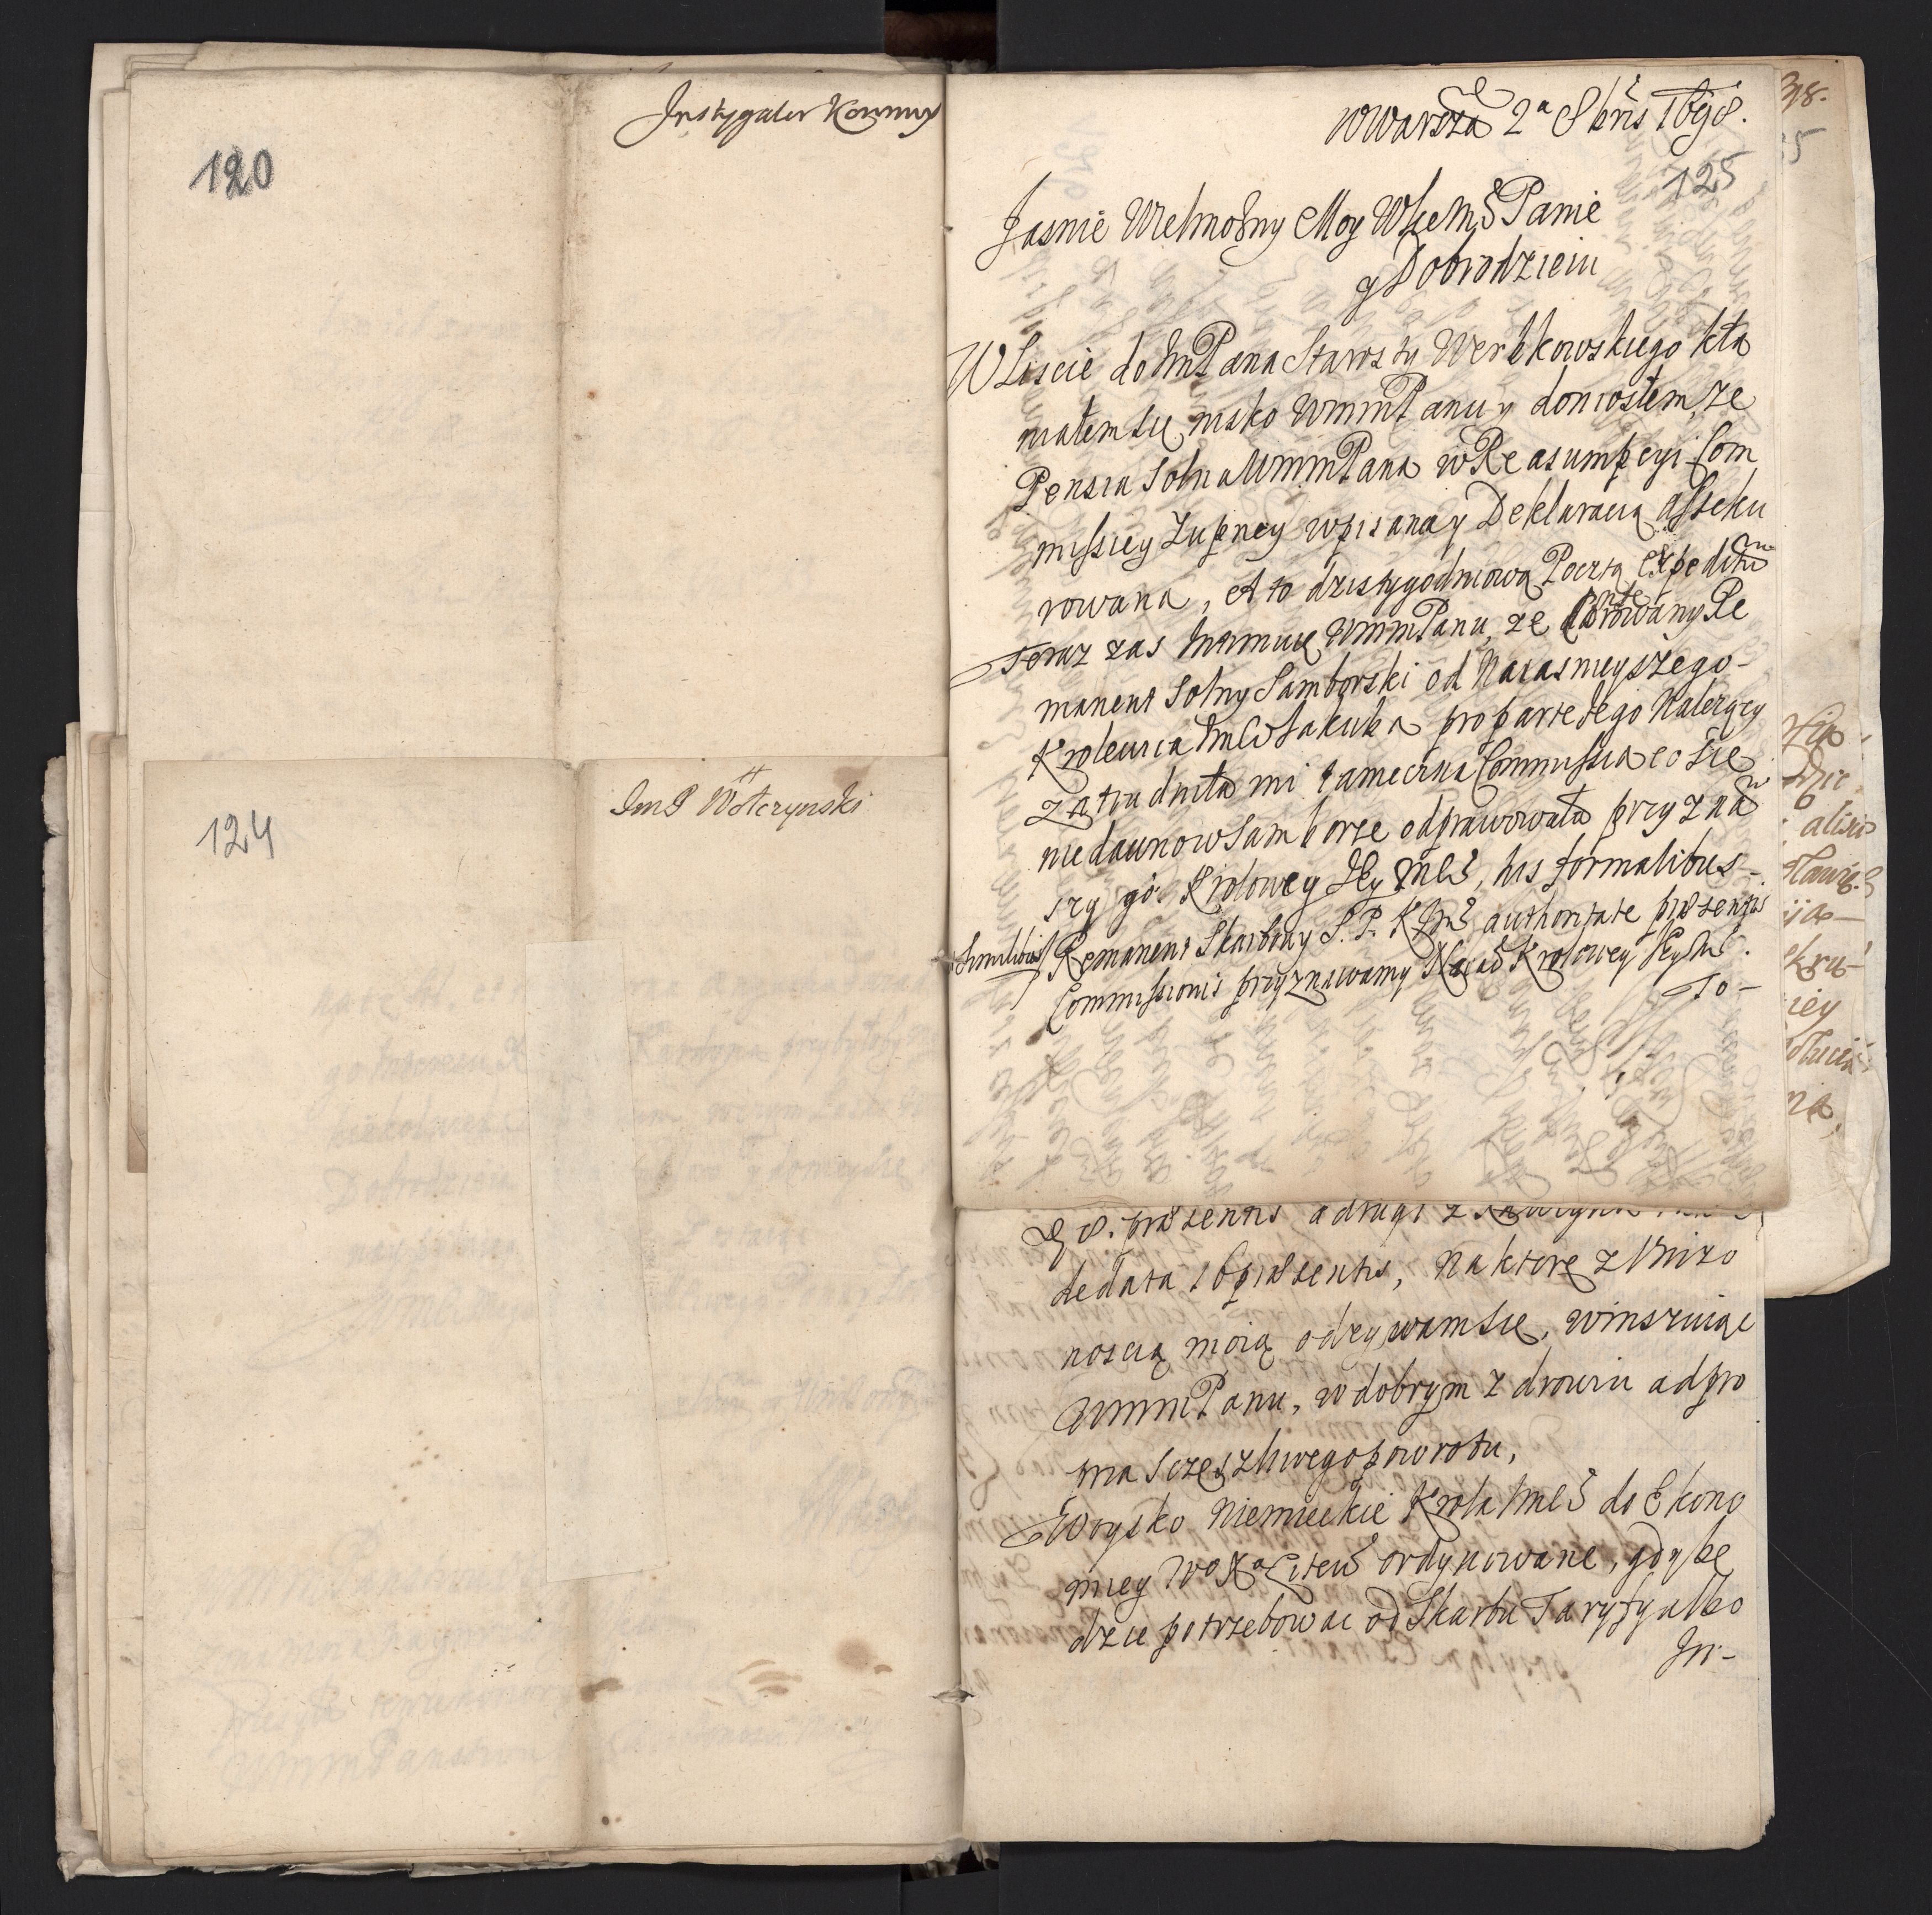 Instygator Kommis
120
124
ImP Wołczynski
w Warsza 2a 8bris 1698.
125
Jasnie Wielmożny Moy Wielce Mści Panie
y Dobrodzieiu
W Liscie do ImPana Starosty Werbkowskiego kła
małem się nisko WmmPanu y doniosłem, ze
Pensia Solna WmmPana w Reasumpcyi Com
missiey Zupney wpisana y Deklaracią asseku
rowana, A to dzis tygodniową Pocztą expeditum
Teraz zas WmmPanu, ze darowany Re
manent Solny Samborski od Naiasnieyszego
Krolewica ImCi Jakuba pro parte Jego Należący
zatrudniła mi tameczna Commissia co się
niedawno w Samborze odprawowała przyznaw
szy go Krolowey Jey Mci, his formalibus
similibus Remanent Skarbowy S. P. K Jmci authoritate præsentis
Commissionis przyznawamy Naiaś Krolowey Jey Mci.
To-
præsentis a drugi z
de data 16 præsentis, na ktore z Unizo
noscią moią odzywam się, winszuiąc
WmmPanu, w dobrym zdrowiu ad pro
pria sczęszliwego powrotu,
Woysko Niemieckie Krola ImCi do Ekono
miey W° X° Litew ordynowane, gdy bę
dzie potrzebowac od Skarbu Taryfy albo
In-
318.
alisis
iey